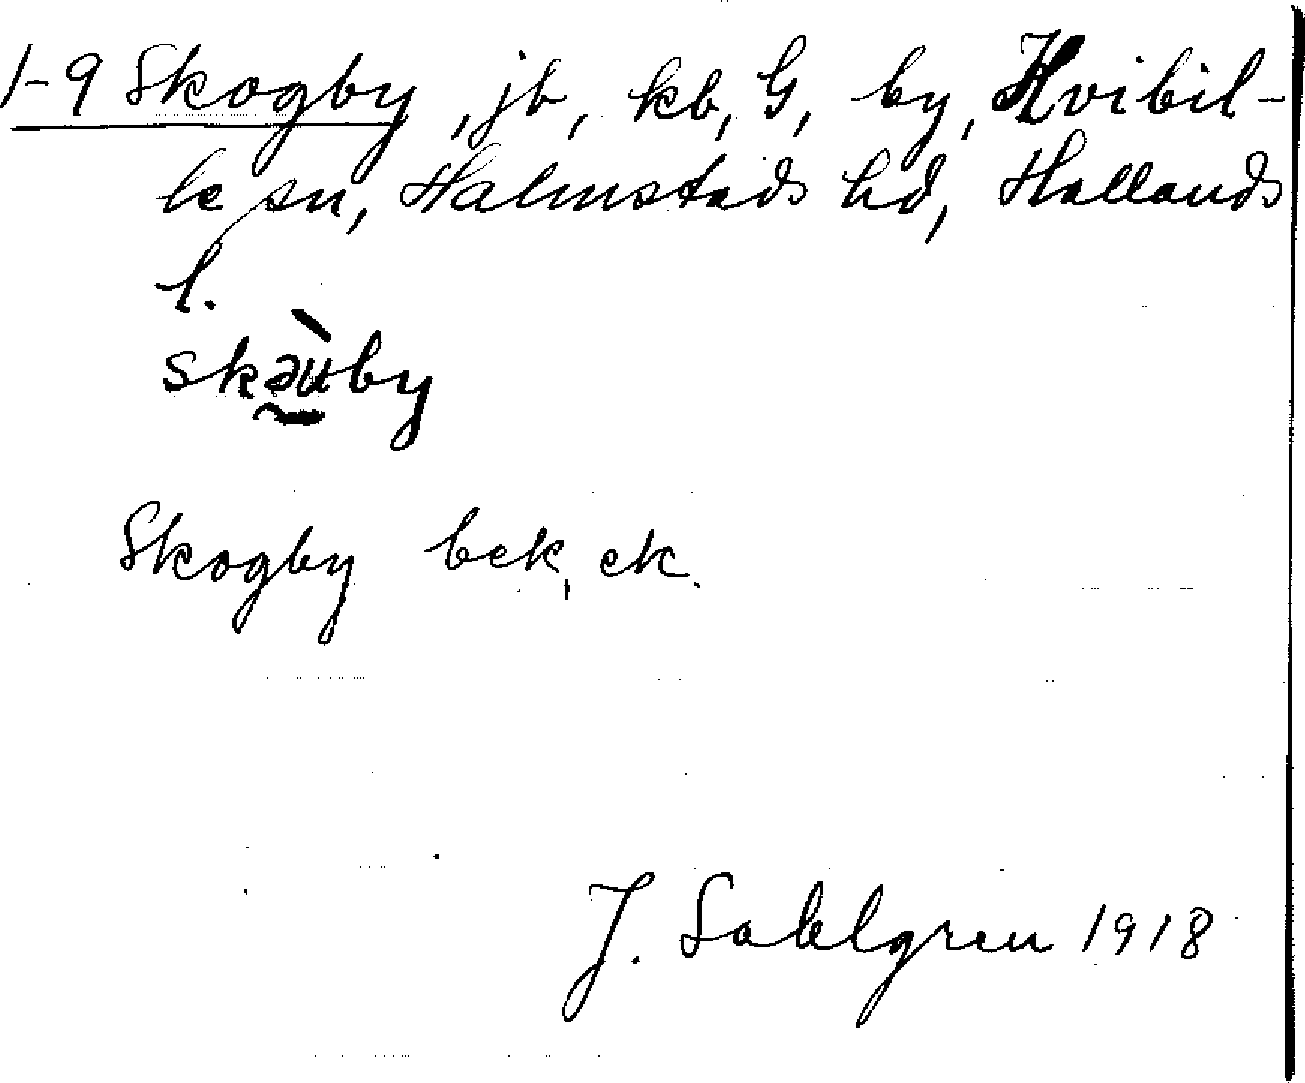 1-9 Skogby, jb, kb, G, by, Hvibil-
le sn, Halmstads hd, Hallands
l.
skə̀u̯by
Skogby bek, ek.
J. Sahlgren 1918